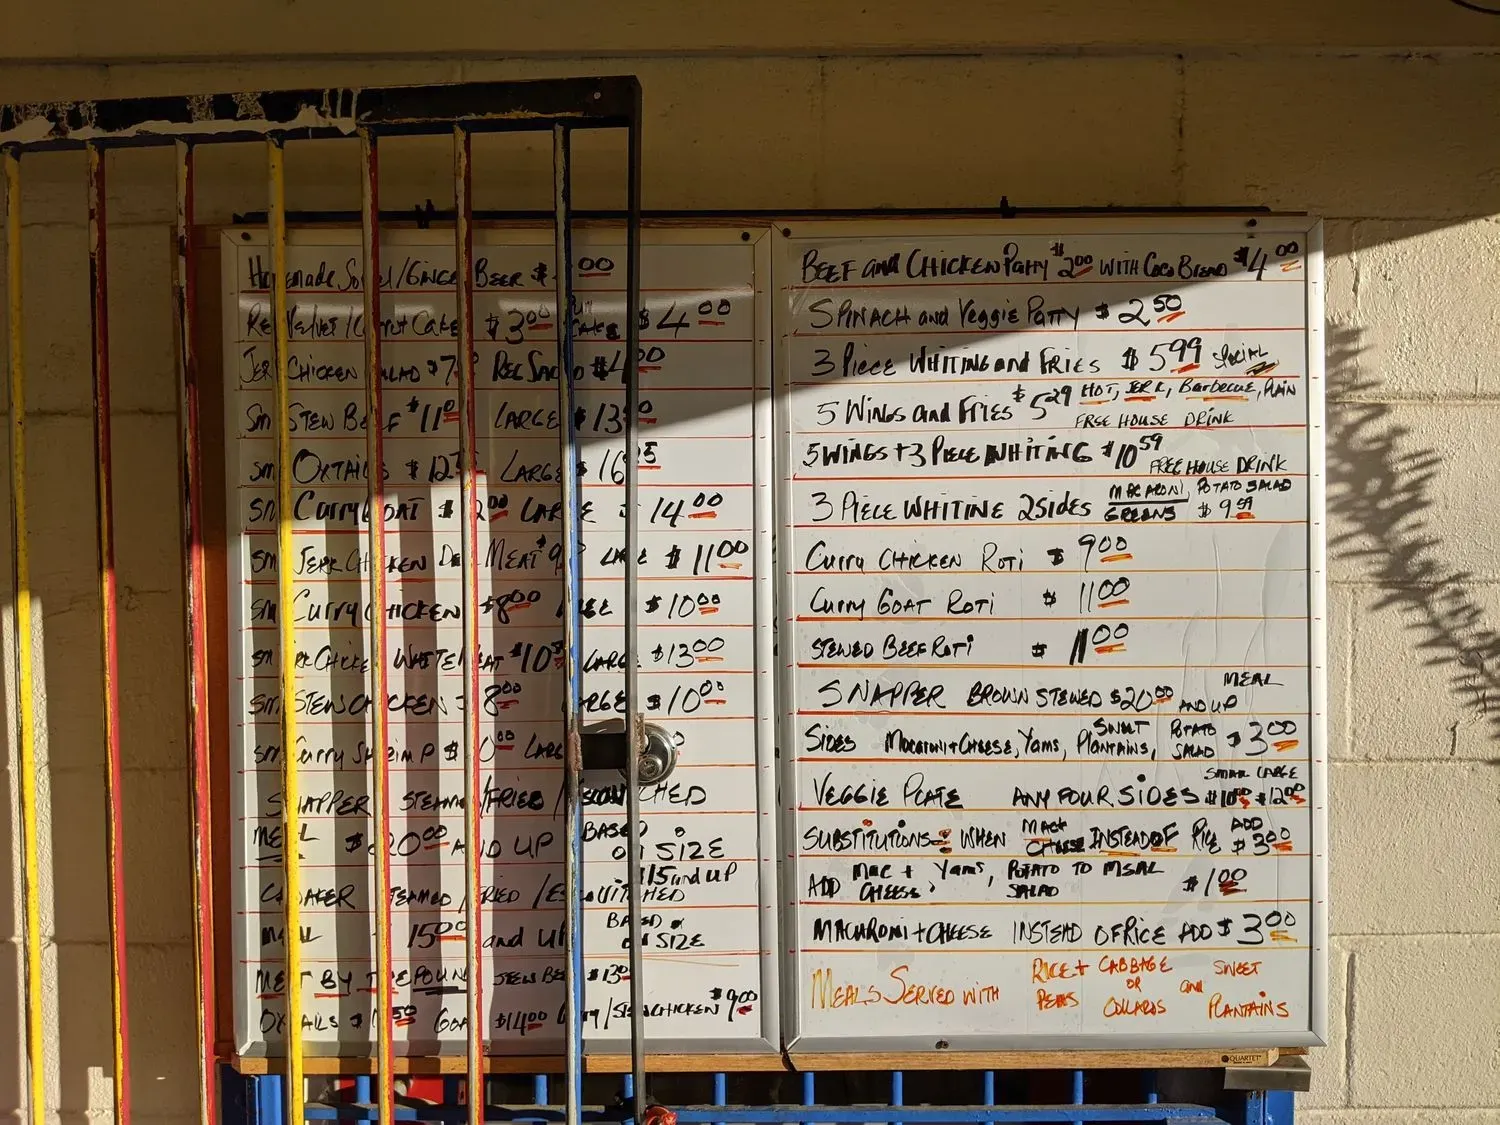 Homemade Sorrel/Ginger Beer $ 00
Red Velvet/Carrot Cake $3.00 $4.00
Jerk Chicken Salad $7 Reg Salad $4.00
Sm Stew Beef $11.00 Large $13.00
Sm Oxtails $12 Large $16.25
Sm Curry Goat $12.00 Large $14.00
Sm Jerk Chicken Dark Meat $9 Large $11.00
Sm Curry Chicken $8.00 Large $10.00
Sm Jerk Chicken White Meat $10 Large $13.00
Sm Stew Chicken $8.00 Large $10.00
Sm Curry Shrimp $ Large
Snapper Steamed/Fried/
Meal $20.00 and up Based on Size
Steamed/Fried/Escovitched $15 and up
Meal 15.00 and up Based on Size
Meat by the Pound Stew Beef $13.00
Oxtails $ Goat $14.00 Curry/Stew Chicken $9.00
Beef and Chicken Patty $2.00 with Coco Bread $4.00
Spinach and Veggie Patty $2.50
3 Piece Whiting and Fries $5.99 Special
5 Wings and Fries $5.29 Hot, Jerk, Barbecue, Plain
Free House Drink
5 Wings + 3 Piece Whiting $10.59 Free House Drink
3 Piece Whiting 2 Sides Macaroni, Potato Salad
Greens $9.59
Curry Chicken Roti $9.00
Curry Goat Roti $11.00
Stewed Beef Roti $11.00
Snapper Brown Stewed $20.00 and up Meal
Sides Macaroni + Cheese, Yams, Sweet Plantains, Potato Salad $3.00
Veggie Plate Any Four Sides Small $10.00 Large $12.00
Substitutions: When Mac + Cheese Instead of Rice Add $3.00
Add Mac + Cheese, Yams, Potato Salad to Meal $1.00
Macaroni + Cheese Instead of Rice Add $3.00
Meals Served with Rice + Peas Cabbage or Collards and Sweet Plantains
QUARTET